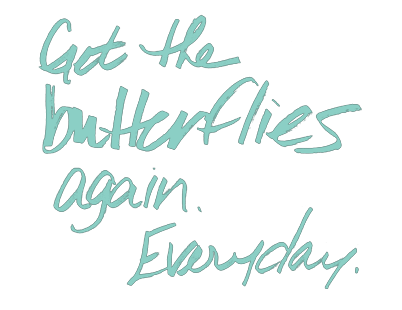 Got the
butterflies
again.
Everyday.